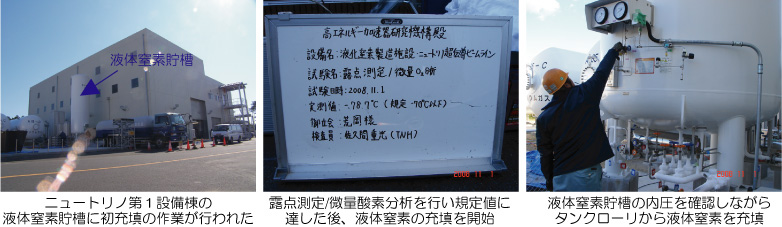 液体窒素貯槽
ニュートリノ第１設備棟の
液体窒素貯槽に初充填の作業が行われた
高エネルギー加速器研究機構殿
設備名：液化窒素製造施設-ニュートリノ超伝導ビームライン
試験名：露点測定／微量O₂分析
試験日時：2008.11.1
実測値：-78.7℃（規定 -70℃以下）
御立会：荒岡様
検査員：佐久間重光（TNH）
2008 11 1
露点測定/微量酸素分析を行い規定値に
達した後、液体窒素の充填を開始
液体窒素貯槽の内圧を確認しながら
タンクローリから液体窒素を充填